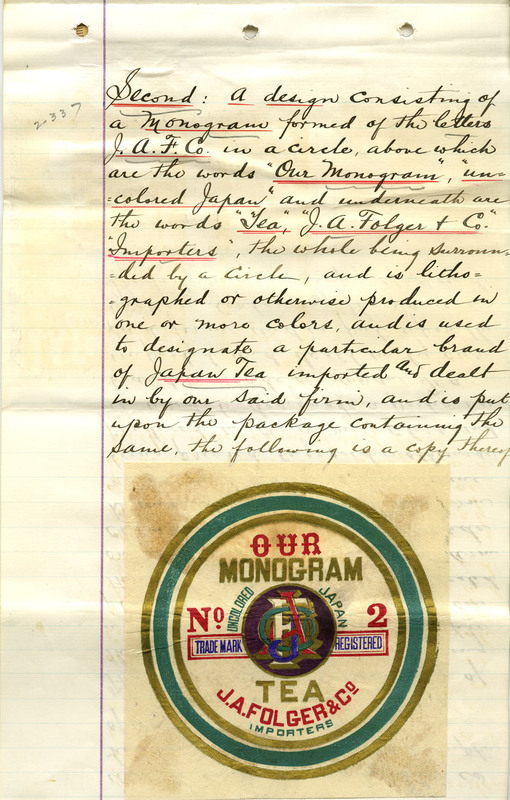 2337
Second: A design consisting of
a Monogram formed of the letters
J. A. F. Co. in a circle, above which
are the words "Our Monogram", "un=
=colored Japan" and underneath are
the words "Tea", "J. A. Folger & Co."
"Importers", the whole being surroun=
=ded by a circle, and is litho=
=graphed or otherwise produced in
one or more colors, and is used
to designate a particular brand
of Japan Tea imported and dealt
in by our said firm, and is put
upon the package containing the
same, the following is a copy thereof
OUR
MONOGRAM
UNCOLORED JAPAN
No 2
TRADE MARK REGISTERED
TEA
J.A.FOLGER & Co
IMPORTERS